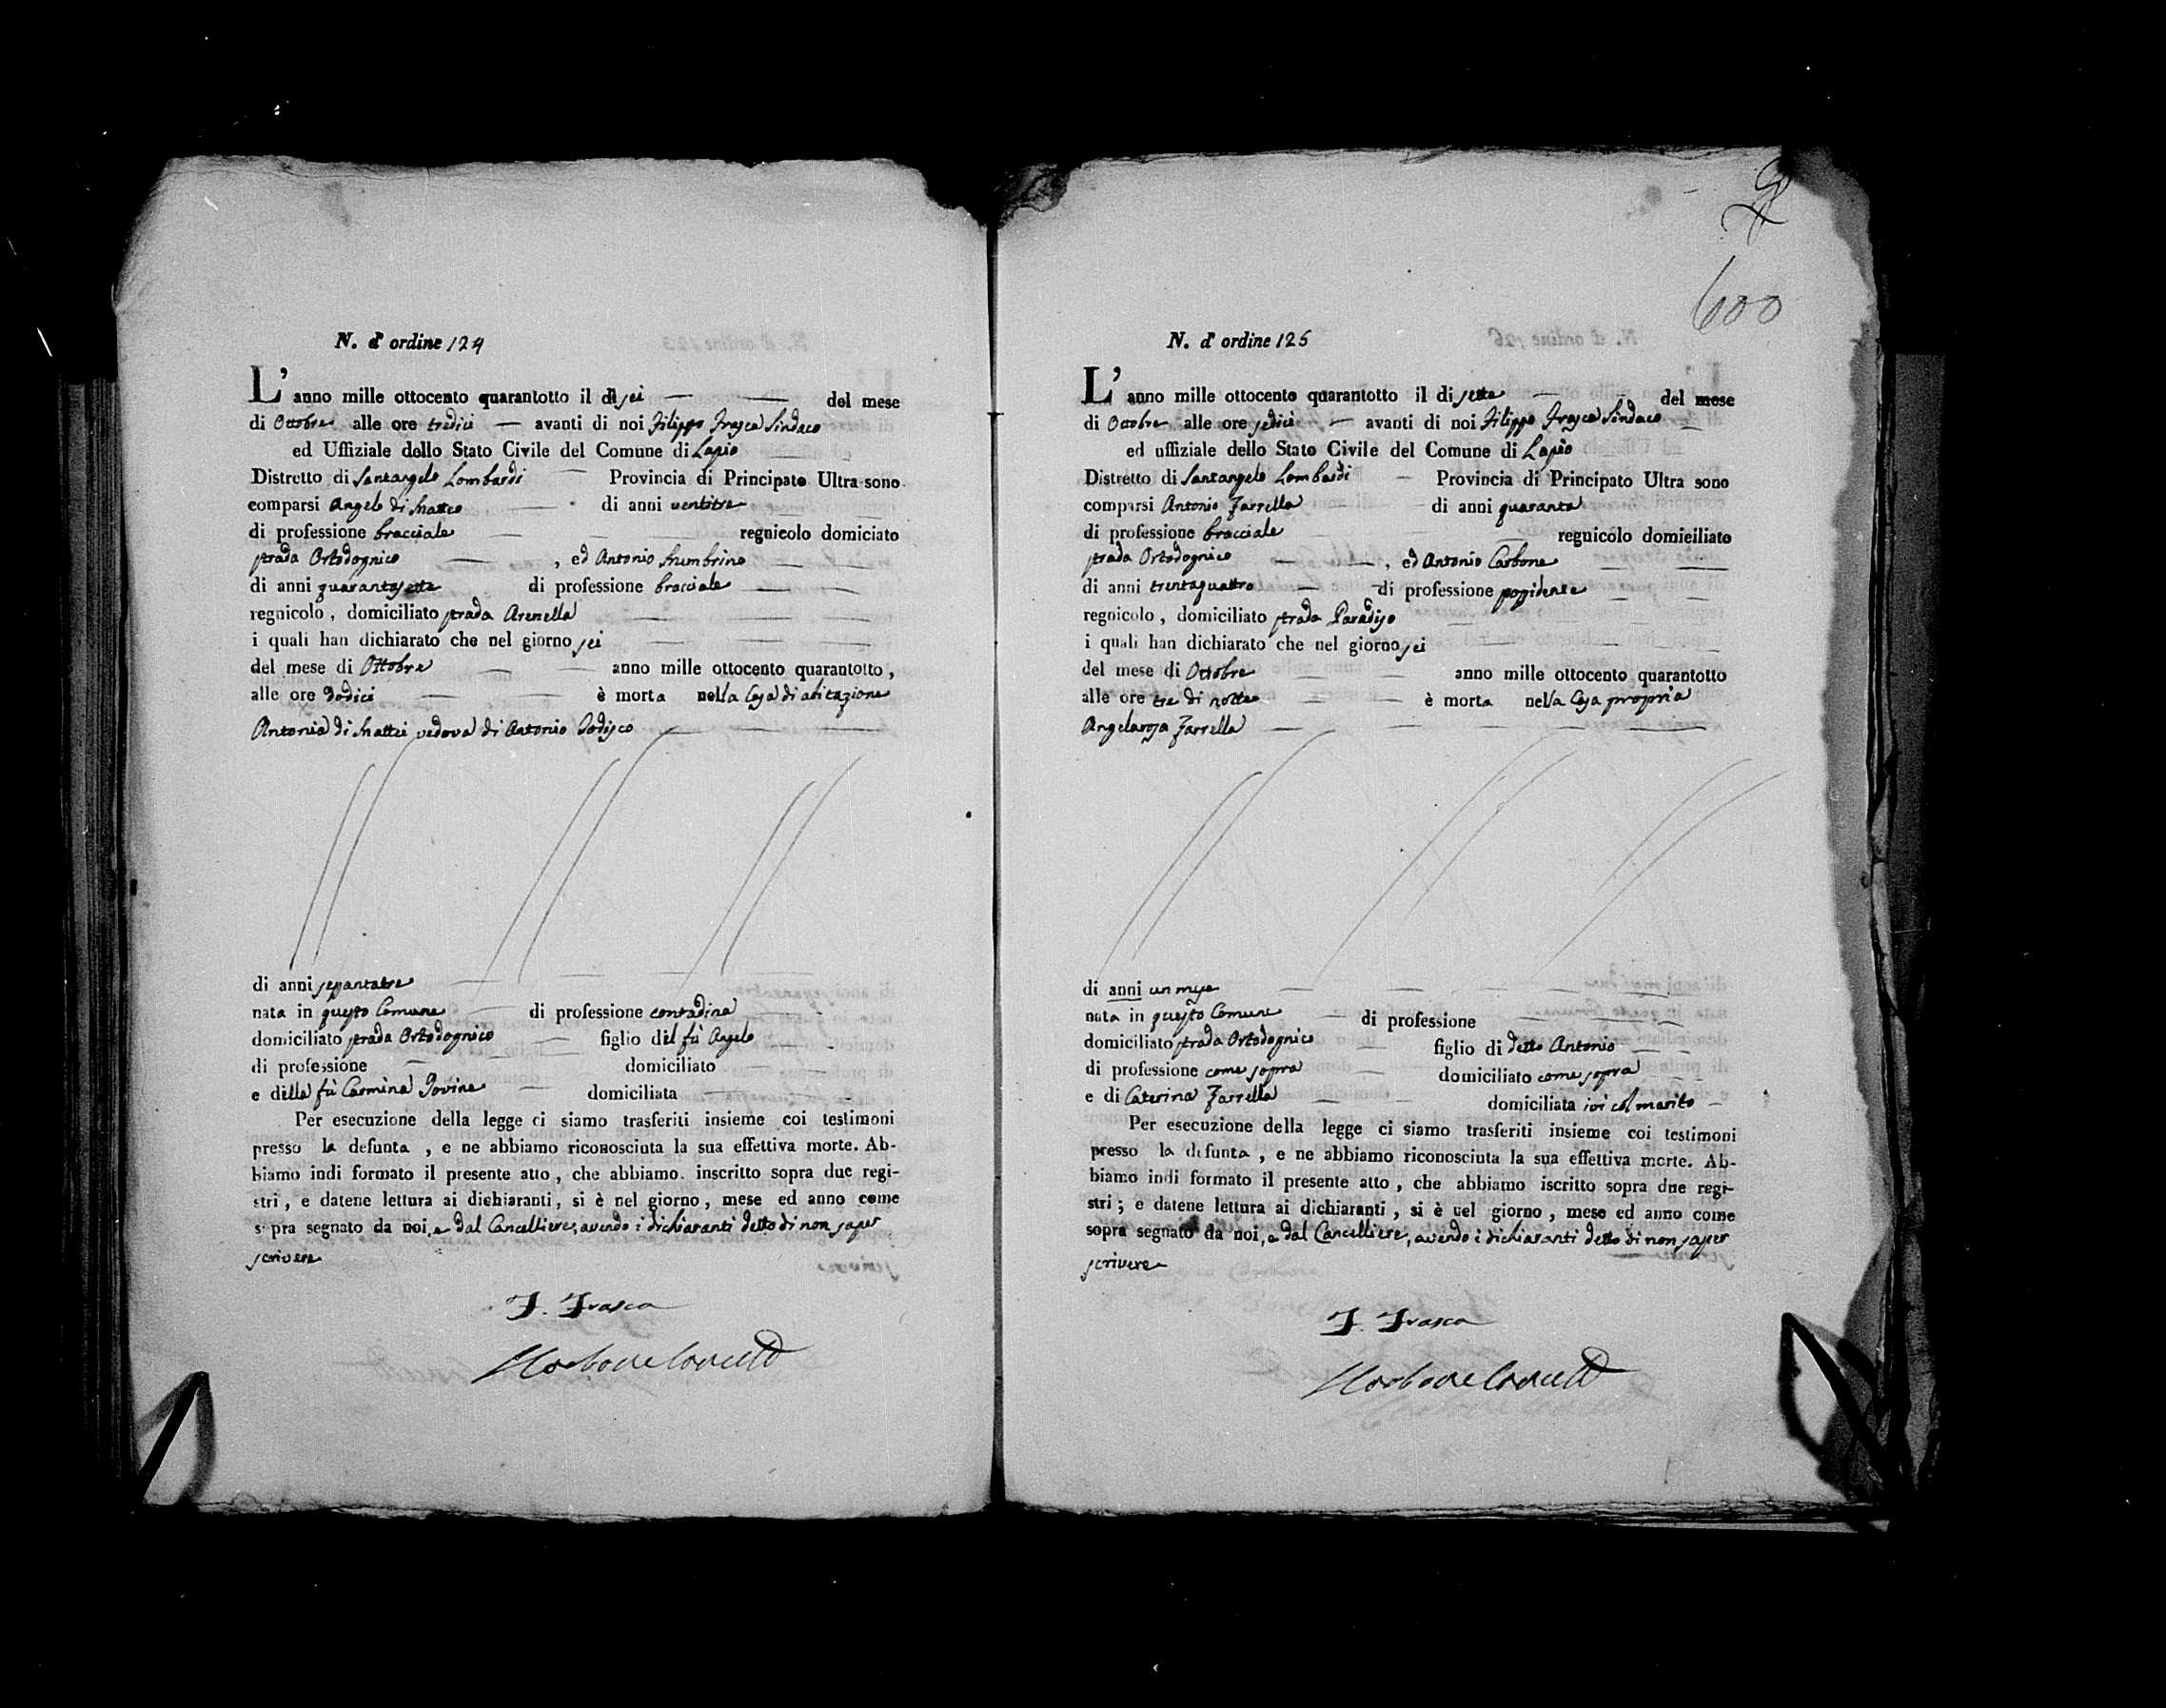 N. d' ordine 124
L' anno mille ottocento quarantotto il dì sei del mese
di Ottobre alle ore tredici avanti di noi Filippo Frasca Sindaco
ed Uffiziale dello Stato Civile del Comune di Lapio
Distretto di Santangelo Lombardi Provincia di Principato Ultra sono
comparsi Angelo di Matteo di anni ventitre
di professione bracciale regnicolo domiciato
strada Ortodognico , ed Antonio
di anni quarantasette di professione bracciale
regnicolo , domiciliato strada Arenella
i quali han dichiarato che nel giorno sei
del mese di Ottobre anno mille ottocento quarantotto ,
alle ore dodici è morta nella Casa di abitazione
Antonia di Mattei vedova di Antonio
di anni settantatre
nata in questo Comune di professione contadina
domiciliato strada Ortodognico figlio del fù Angelo
di professione domiciliato
e della fù Carmina Iovine domiciliata
Per esecuzione della legge ci siamo trasferiti insieme coi testimoni
presso la defunta , e ne abbiamo riconosciuta la sua effettiva morte. Ab-
biamo indi formato il presente atto , che abbiamo. inscritto sopra due regi-
stri , e datene lettura ai dichiaranti , si è nel giorno , mese ed anno come
sopra segnato da noi, e dal Cancelliere, avendo i dichiaranti detto di non saper
scrivere
F. Frasca
600
N. d' ordine 125
L' anno mille ottocento quarantotto il di sette del mese
di Ottobre alle ore sedici avanti di noi Filippo Frasca Sindaco
ed uffiziale dello Stato Civile del Comune di Lapio
Distretto di Santangelo Lombardi Provincia di Principato Ultra sono
comparsi Antonio Zarrella di anni quaranta
di professione bracciale regnicolo domiciliato
strada Ortodognico , ed Antonio Carbone
di anni trentaquattro di professione possidente
regnicolo , domiciliato strada Paradiso
i quali han dichiarato che nel giorno sei
del mese di Ottobre anno mille ottocento quarantotto
alle ore tre di notte è morta nella Casa propria
Angelarosa Zarrella
di anni un mese
nata in questo Comune di professione
domiciliato strada Ortodognico figlio di detto Antonio
di professione come sopra domiciliato come sopra
e di Caterina Zarrella domiciliata ivi col marito
Per esecuzione della legge ci siamo trasferiti insieme coi testimoni
presso la defunta , e ne abbiamo riconosciuta la sua effettiva morte. Ab-
biamo indi formato il presente atto , che abbiamo iscritto sopra due regi-
stri ; e datene lettura ai dichiaranti , si è nel giorno , mese ed anno come
sopra segnato da noi, e dal Cancelliere, avendo i dichiaranti detto di non saper
scrivere
F. Frasca